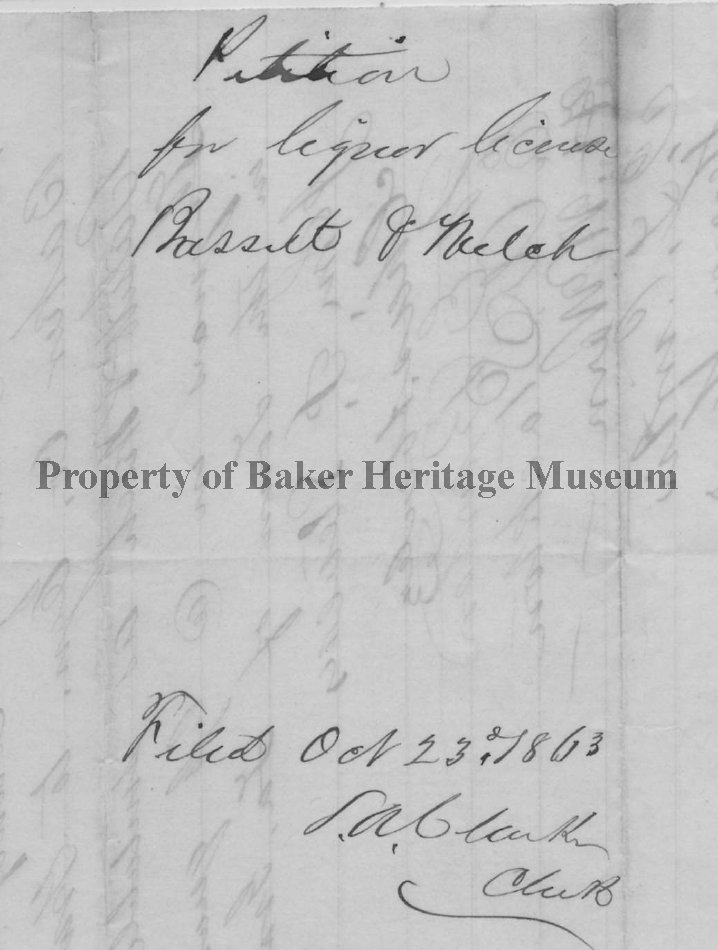 Petition
for liquor license
Bassett & Welch
Property of Baker Heritage Museum
Filed Oct 23d, 1863
S. A. Clarke
Clerk